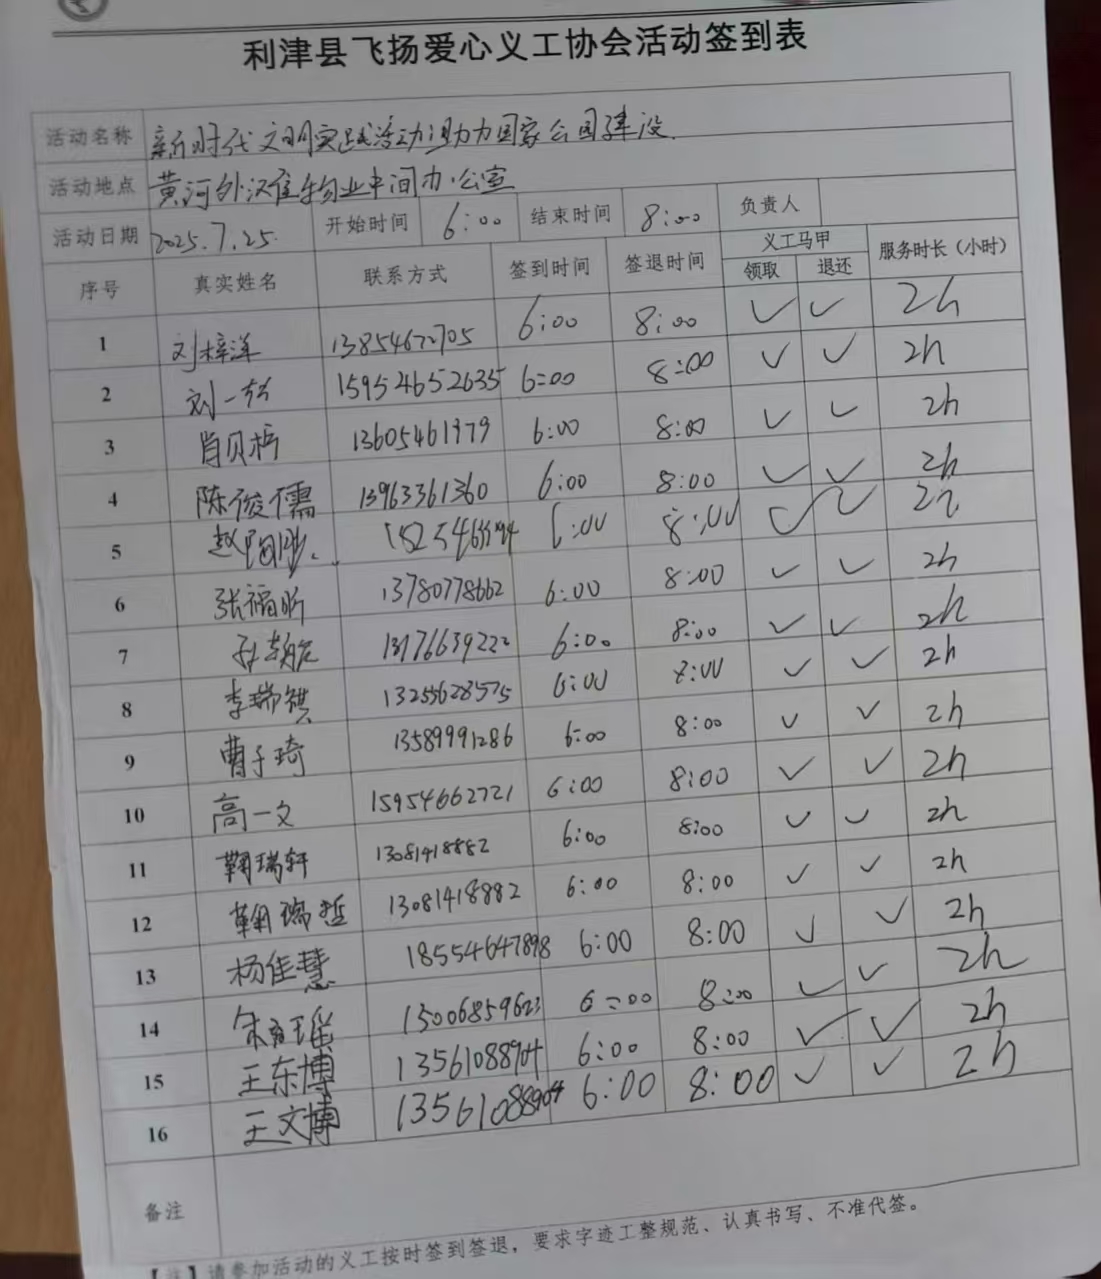 利津县飞扬爱心义工协会活动签到表
活动名称 新时代文明实践活动助力国家公园建设
活动地点 黄河外滩 物业中间办公室
活动日期 2025.7.25. 开始时间 6:00 结束时间 8:00 负责人
序号 真实姓名 联系方式 签到时间 签退时间 义工马甲 领取 退还 服务时长（小时）
1 刘梓洋 13854672705 6:00 8:00 ✓ ✓ 2h
2 刘一 15954652635 6:00 8:00 ✓ ✓ 2h
3 肖贝 13605461979 6:00 8:00 ✓ ✓ 2h
4 陈俊儒 13963361360 6:00 8:00 ✓ ✓ 2h
5 赵 6:00 8:00 ✓ ✓ 2h
6 张福昕 13780778662 6:00 8:00 ✓ ✓ 2h
7 孙 13176639222 6:00 8:00 ✓ ✓ 2h
8 李瑞祺 13255628575 6:00 8:00 ✓ ✓ 2h
9 曹子琦 13589991286 6:00 8:00 ✓ ✓ 2h
10 高一文 15954662721 6:00 8:00 ✓ ✓ 2h
11 鞠瑞轩 13081418882 6:00 8:00 ✓ ✓ 2h
12 鞠瑞哲 13081418882 6:00 8:00 ✓ ✓ 2h
13 杨佳慧 18554647898 6:00 8:00 ✓ ✓ 2h
14 朱 瑶 15006859623 6:00 8:00 ✓ ✓ 2h
15 王东博 13561088904 6:00 8:00 ✓ ✓ 2h
16 王文博 13561088904 6:00 8:00 ✓ ✓ 2h
备注
【注】请参加活动的义工按时签到签退，要求字迹工整规范、认真书写、不准代签。